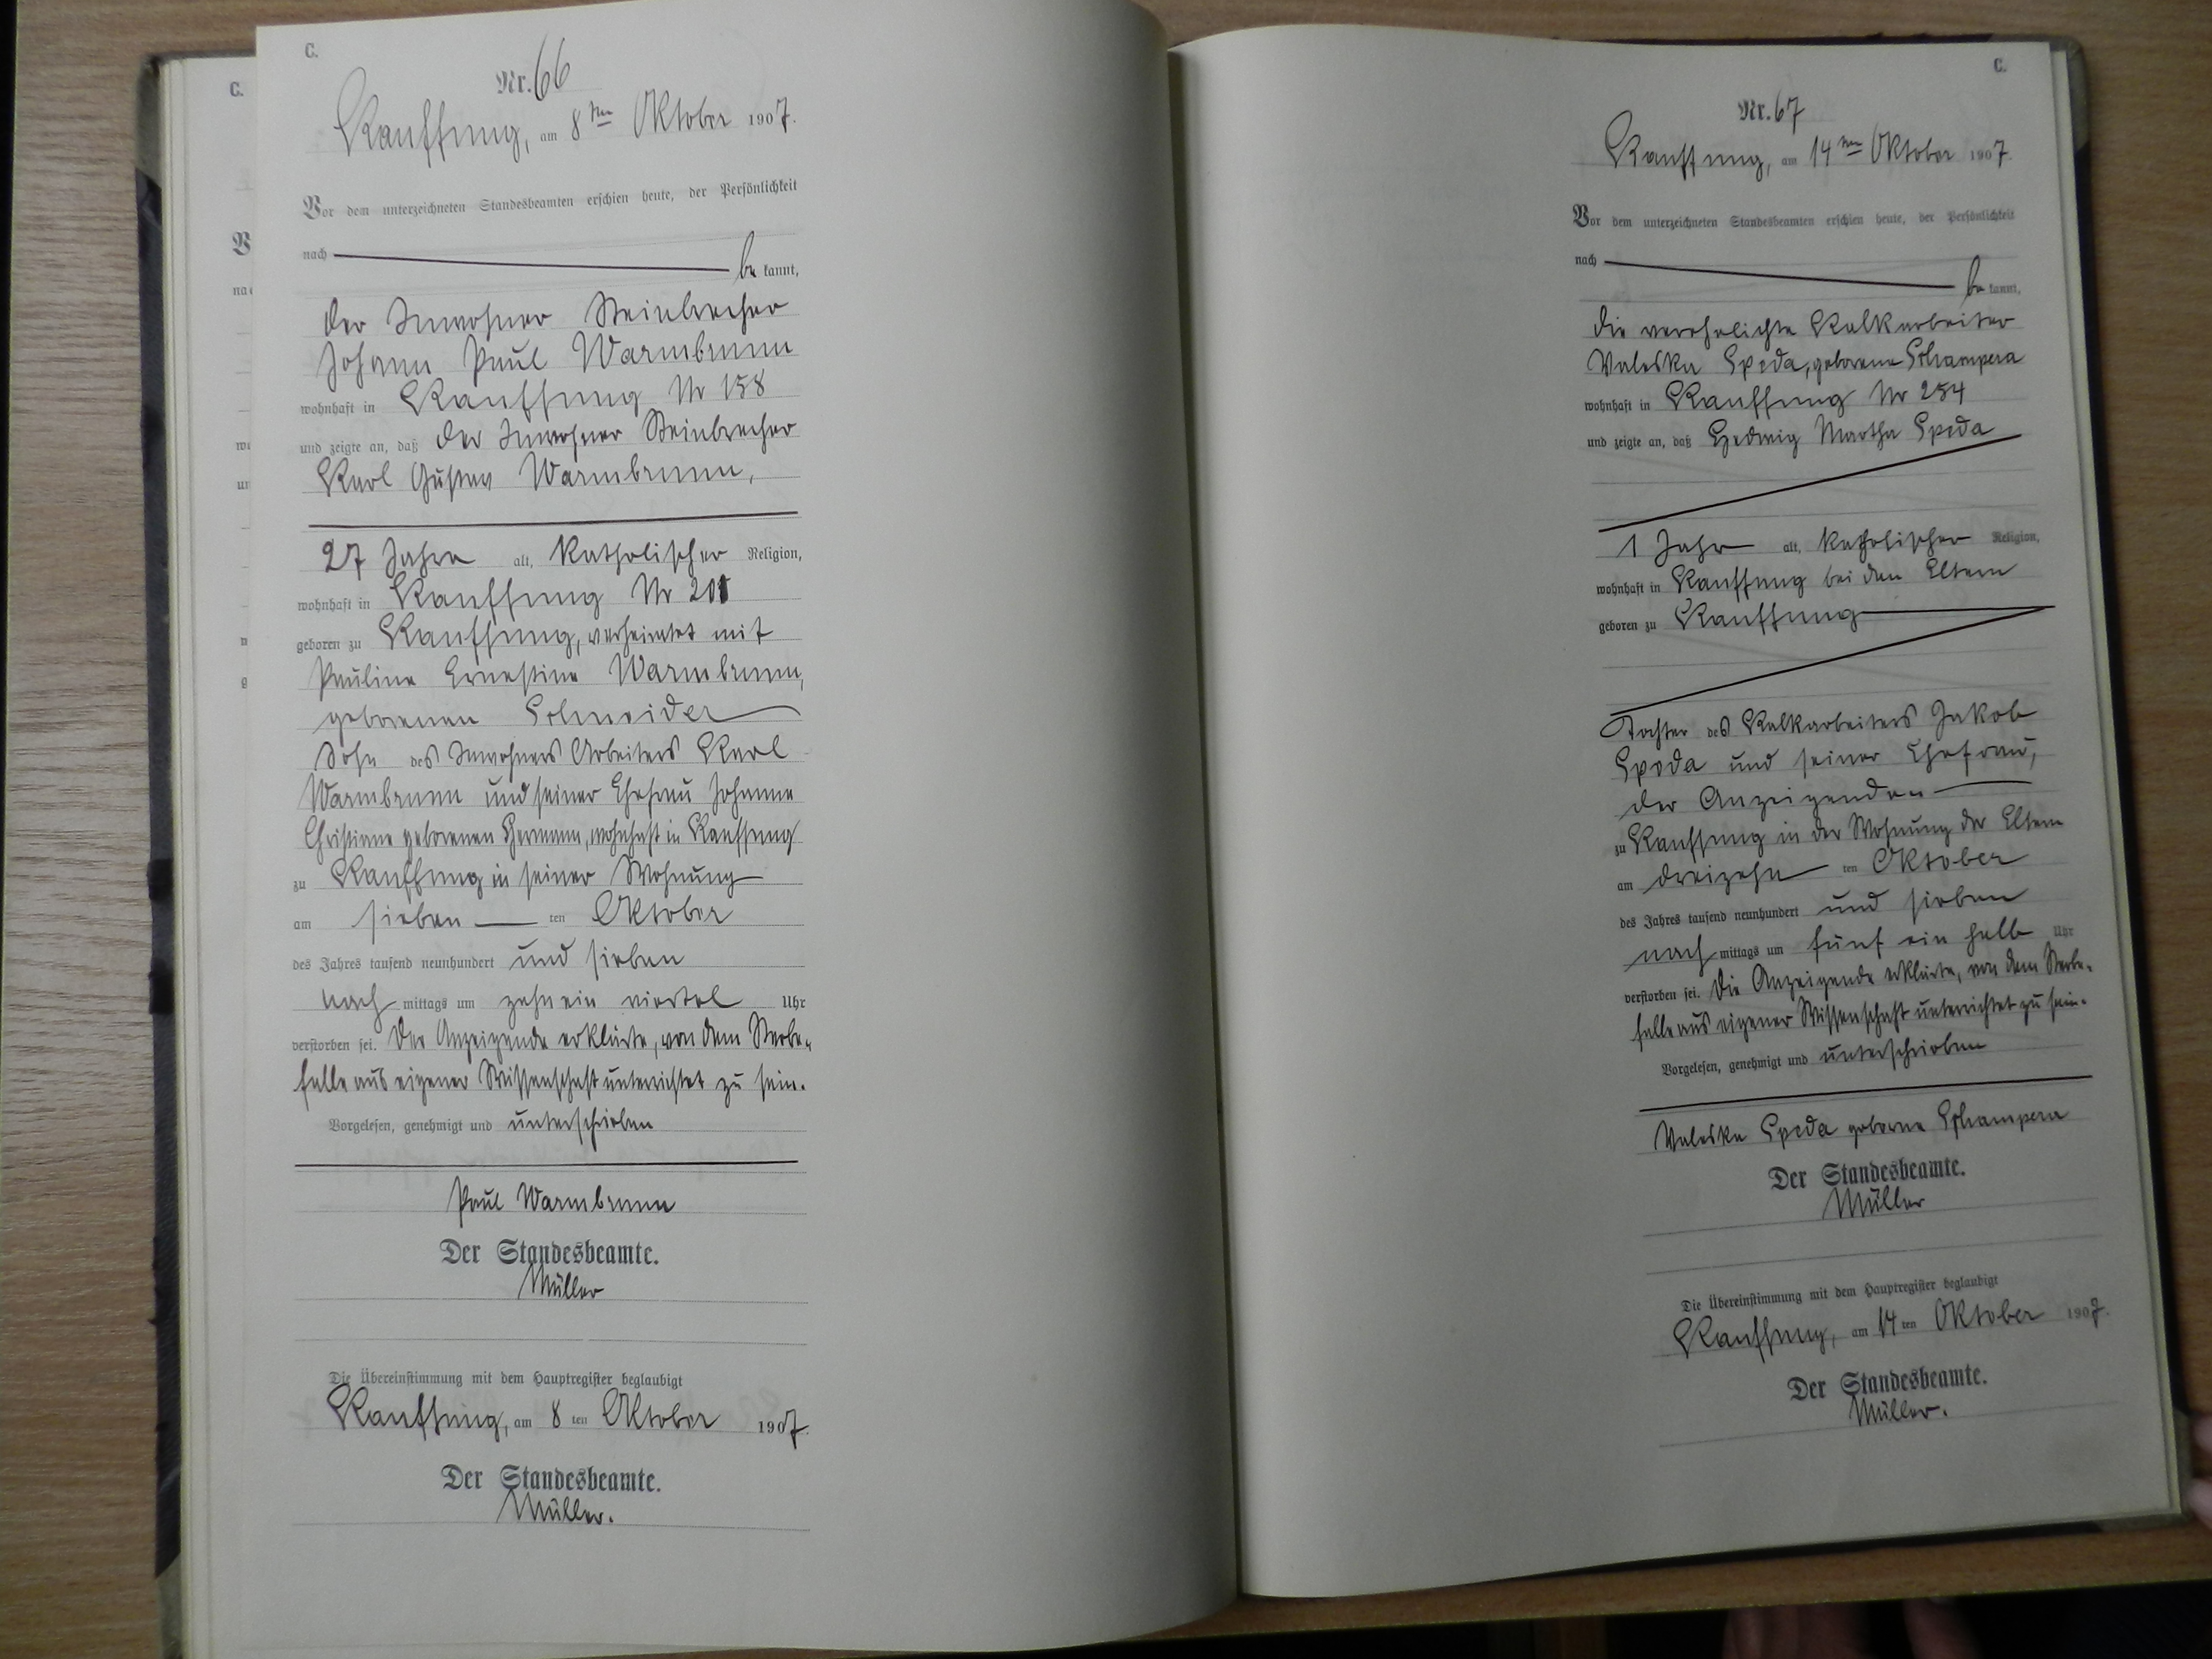 C.
Nr. 66
Kauffung, am 8ten Oktober 1907.
Vor dem unterzeichneten Standesbeamten erschien heute, der Persönlichkeit
nach be kannt,
der Inwohner Steinbrecher
Johann Paul Warmbrunn
wohnhaft in Kauffung Nr 158
und zeigte an, daß der Inwohner Steinbrecher
Karl Gustav Warmbrunn,
27 Jahre alt, katholischer Religion,
wohnhaft in Kauffung Nr
geboren zu Kauffung, verheiratet mit
Pauline Ernestine Warmbrunn,
geborenen Schneider
Sohn des Inwohners Arbeiters Karl
Warmbrunn und seiner Ehefrau Johanne
Christiane geborenen Hermann, wohnhaft in Kauffung
zu Kauffung in seiner Wohnung
am sieben ten Oktober
des Jahres tausend neunhundert und sieben
nach mittags um zehn ein viertel Uhr
verstorben sei. Der Anzeigende erklärte, von dem Sterbe-
falle aus eigener Wissenschaft unterrichtet zu sein.
Vorgelesen, genehmigt und unterschrieben
Paul Warmbrunn
Der Standesbeamte.
Müller
Die Übereinstimmung mit dem Hauptregister beglaubigt
Kauffung, am 8 ten Oktober 1907.
Der Standesbeamte.
Müller.
C.
Nr. 67
Kauffung, am 14ten Oktober 1907.
Vor dem unterzeichneten Standesbeamten erschien heute, der Persönlichkeit
nach be kannt,
die verehelichte Kalkarbeiter
Valeska Spoda, geborene Schampera
wohnhaft in Kauffung Nr 254
und zeigte an, daß Hedwig Martha Spoda
1 Jahr alt, katholischer Religion,
wohnhaft in Kauffung bei den Eltern
geboren zu Kauffung
Tochter des Kalkarbeiters Jakob
Spoda und seiner Ehefrau,
der Anzeigenden
zu Kauffung in der Wohnung der Eltern
am dreizehn ten Oktober
des Jahres tausend neunhundert und sieben
nach mittags um fünf ein halb Uhr
verstorben sei. Die Anzeigende erklärte, von dem Sterbe-
falle aus eigener Wissenschaft unterrichtet zu sein.
Vorgelesen, genehmigt und unterschrieben
Valeska Spoda geborne Schampera
Der Standesbeamte.
Müller
Die Übereinstimmung mit dem Hauptregister beglaubigt
Kauffung, am 14 ten Oktober 1907.
Der Standesbeamte.
Müller.